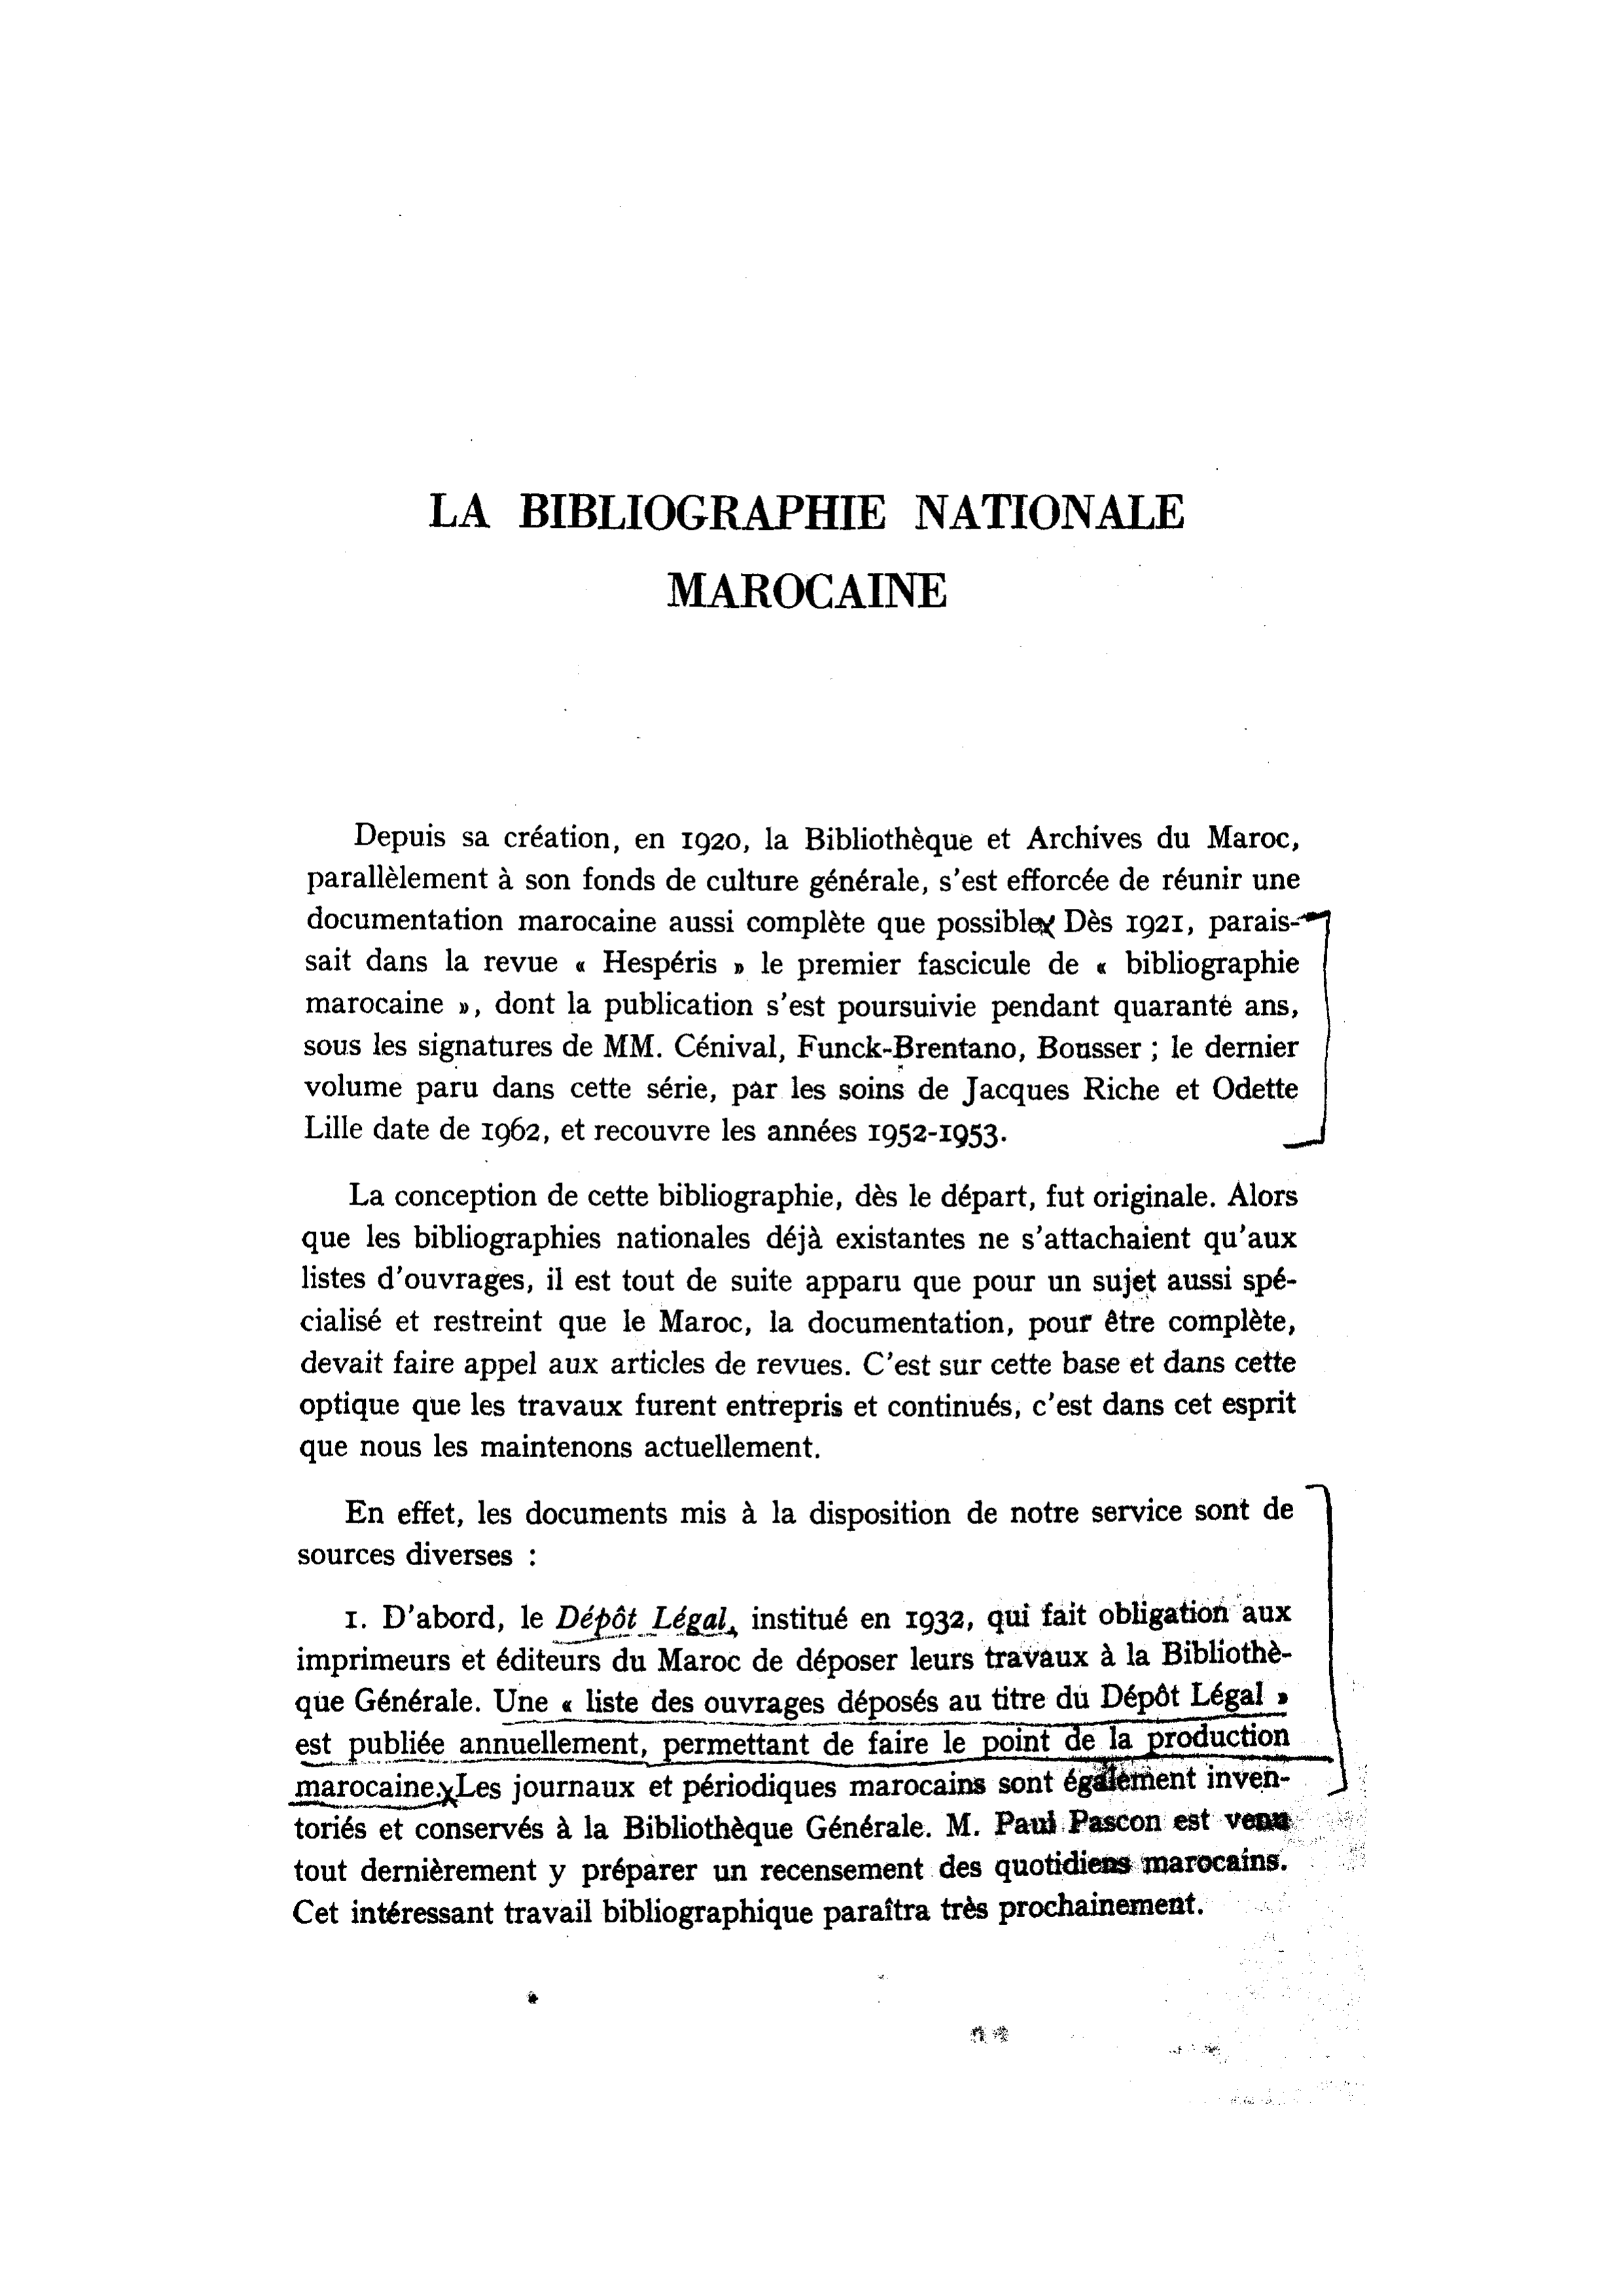 LA BIBLIOGRAPHIE NATIONALE
MAROCAINE
Depuis sa création, en 1920, la Bibliothèque et Archives du Maroc,
parallèlement à son fonds de culture générale, s'est efforcée de réunir une
documentation marocaine aussi complète que possible. Dès 1921, parais-
sait dans la revue « Hespéris » le premier fascicule de « bibliographie
marocaine », dont la publication s'est poursuivie pendant quarante ans,
sous les signatures de MM. Cénival, Funck-Brentano, Bousser ; le dernier
volume paru dans cette série, par les soins de Jacques Riche et Odette
Lille date de 1962, et recouvre les années 1952-1953.
La conception de cette bibliographie, dès le départ, fut originale. Alors
que les bibliographies nationales déjà existantes ne s'attachaient qu'aux
listes d'ouvrages, il est tout de suite apparu que pour un sujet aussi spé-
cialisé et restreint que le Maroc, la documentation, pour être complète,
devait faire appel aux articles de revues. C'est sur cette base et dans cette
optique que les travaux furent entrepris et continués, c'est dans cet esprit
que nous les maintenons actuellement.
En effet, les documents mis à la disposition de notre service sont de
sources diverses :
1. D'abord, le Dépôt Légal, institué en 1932, qui fait obligation aux
imprimeurs et éditeurs du Maroc de déposer leurs travaux à la Bibliothè-
que Générale. Une « liste des ouvrages déposés au titre du Dépôt Légal »
est publiée annuellement, permettant de faire le point de la production
marocaine. Les journaux et périodiques marocains sont également inven-
toriés et conservés à la Bibliothèque Générale. M. Paul Pascon est venu
tout dernièrement y préparer un recensement des quotidiens marocains.
Cet intéressant travail bibliographique paraîtra très prochainement.